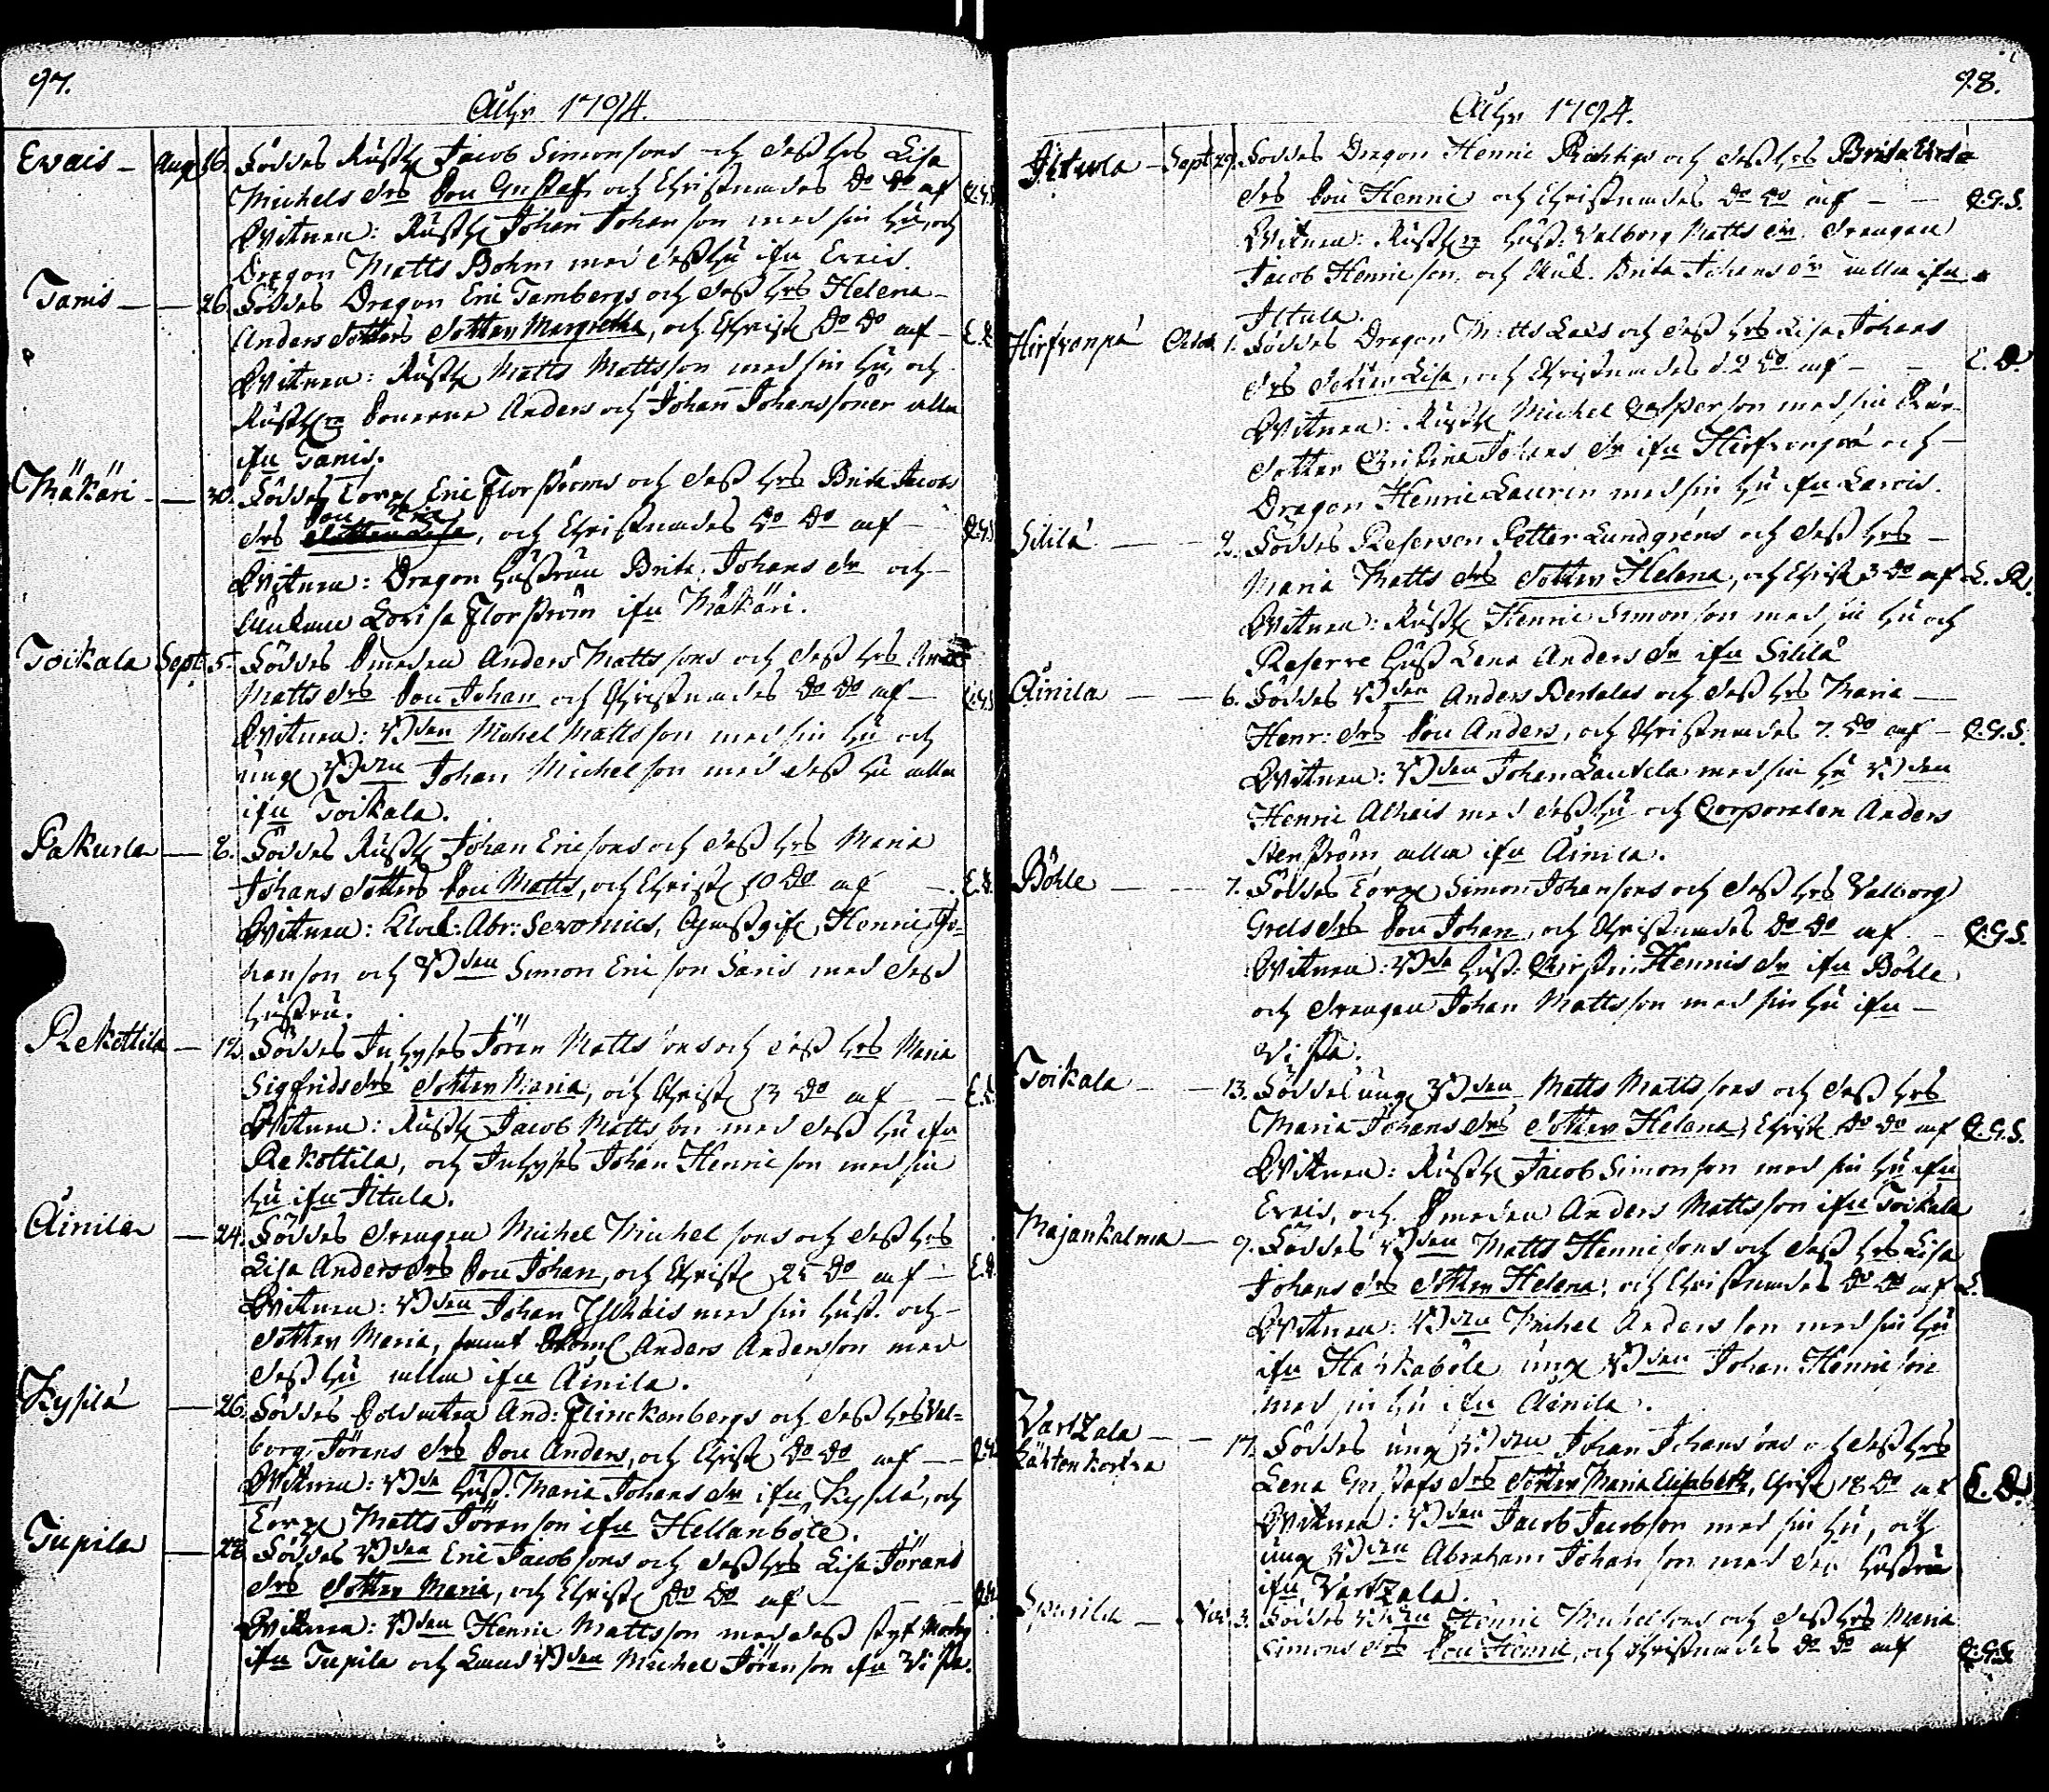 97.
Åhr 1794.
Evais - Aug 16. Föddes Rusth Jacob Simonsons och dess hus Lisa
Michels drs son Gustaf och Christnades do do af C.G.S.
Witnen: Rusth Johan Johanson med sin hu, och
Dragon Matts Bohm med dess hu ifrn Evais.
Tanis - - 26. Föddes Dragon Eric Tambergs och dess hrs Helena
Anders dotters dotter Margretha, och Christ do do af -
Witnen: Rusth Matts Mattsson med sin hu, och
Rusth sonerne Anders och Johan Johanssoner alla
ifrn Tanis.
Mäkäri - - 30. Föddes Torp Eric Florströms och dess hrs Brita Jacobs
drs son Eric, och Christnades do do af - C.G.S
Witnen: Dragon hustrun Brita Johans dr och
Lovisa Florström ifrn Mäkäri.
Toikala Sept. 5. Föddes Smeden Anders Matts sons och dess hrs
Matts drs son Johan och Christnades do do af - C.G.S
Witnen: Bden Michel Mattsson med sin hu och
ung Bden Johan Michelson med dess hu alla
ifrn Toikala.
Pakurla - 8. Föddes Rusth Johan Ericsons och dess hrs Maria
Johans dotters son Matts, och Christ 10 do af
Witnen: Klock: Abr: Servonius, Henric Jo-
hanson och Bden Simon Ericson Sanis med dess
hustru.
Rekottila - 12. Föddes Inhyses Jören Mattssons och dess hrs Maria
Sigfrids drs dotter Maria, och Christ 13 do af - -
Witnen: Rusth Jacob Mattsson med dess hu ifrn
Rekottila, och Inhyses Johan Henricson med sin
hu ifrn Iltula.
Äinila - 24. Föddes drengen Michel Michelsons och dess hrs
Lisa Anders drs son Johan, och Christ 25 do af -
Witnen: Bden Johan med sin hust. och
dotter Maria, samt Anders Anderson med
dess hu alla ifrn Äinila.
Kyfilä - 26. Föddes Soldaten And: Flinckenbergs och dess hrs Val=
borg Jörens drs son Anders, och Christ do do af -
Witnen: Bde Hust. Maria Johans dr ifrn Kyfilä, och
Torp Matts Jörenson ifrn Hellanböle.
Tupila - 28. Föddes Bden Eric Jacobsons och dess hrs Lisa Jörans
drs dotter Maria, och Christ do do af -
Witnen: Bden Henric Mattsson med dess styf Moder
ifrn Tupila och Bden Michel Jörenson ifrn Vista.
98.
Åhr 1794.
Iltula - Sept 29. Föddes Dragon Henric och dess hrs Brita
drs son Henric och Christnades do do af - - C.G.S.
Witnen: Rusth Hust: Valborg Matts dr drengen
Jacob Henricson, och Brita Johans dr alla ifrn
Iltula.
Hirfvonpä Octob. 1. Föddes Dragon Matts Laes och dess hrs Lisa Johans
drs dotter Lisa, och Christnades d. 2 do af - - E. O.
Witnen: Rusth Michel Casperson med sin
dotter Christina Johans dr ifrn Hirfvonpää och
Dragon Henric Laurin med sin hu ifrn Larois.
Sililä - - 2. Föddes Reserven Petter Lundgrens och dess hrs -
Maria Matts drs dotter Helena, och Christ 3 do af L. R.
Witnen: Rusth Henric Simonson med sin hu och
Reserve Hust Lena Anders dr ifrn Sililä
Äinila - - 6. Föddes Bden Anders Bertelas och dess hrs Maria -
Henr: drs son Anders, och Christnades 7. do af - C.G.S.
Witnen: Bden Johan Lautela med sin hu Bden
Henric Alhais med dess hu och Corporalen Anders
Stenström alla ifrn Äinila.
Böhle - - 7. Föddes Torp Simon Johansons och dess hrs Valborg
Grels drs son Johan, och Christnades do do af - C.G.S.
Witnen: Bde Hust: Christin Henrics dr ifrn Böhle
och drengen Johan Mattsson med sin hu ifrn -
Vista.
Toikala - - 13. Föddes ung Bden Matts Mattssons och dess hrs
Maria Johans drs dotter Helena, Christ do do af C.G.S.
Witnen: Rusth Jacob Simonson med sin hu ifrn
Evais, och Smeden Anders Mattsson ifrn Toikala
Majankalma - 9. Föddes Bden Matts Henricsons och dess hrs Lisa
Johans drs dotter Helena, och Christnades do do af
Witnen: Bden Michel Anderson med sin hu
ifrn Harkaböle ung Bden Johan Henricson
med sin hu ifrn Äinila.
Vartzala - - 17. Föddes ung Bden Johan Johansons och dess hrs
Kähtenkorfva Lena Gustafs drs dotter Maria Elisabeth, Christ 18 do af E. O.
Witnen: Bden Jacob Jacobson med sin hu, och
ung Bden Abraham Johanson med des hustru
ifrn Vartzala.
Spurila - Nov. 3. Föddes Bden Henric Michelsons och dess hrs Maria
Simons drs son Henric, och Christnades do do af C.G.S.